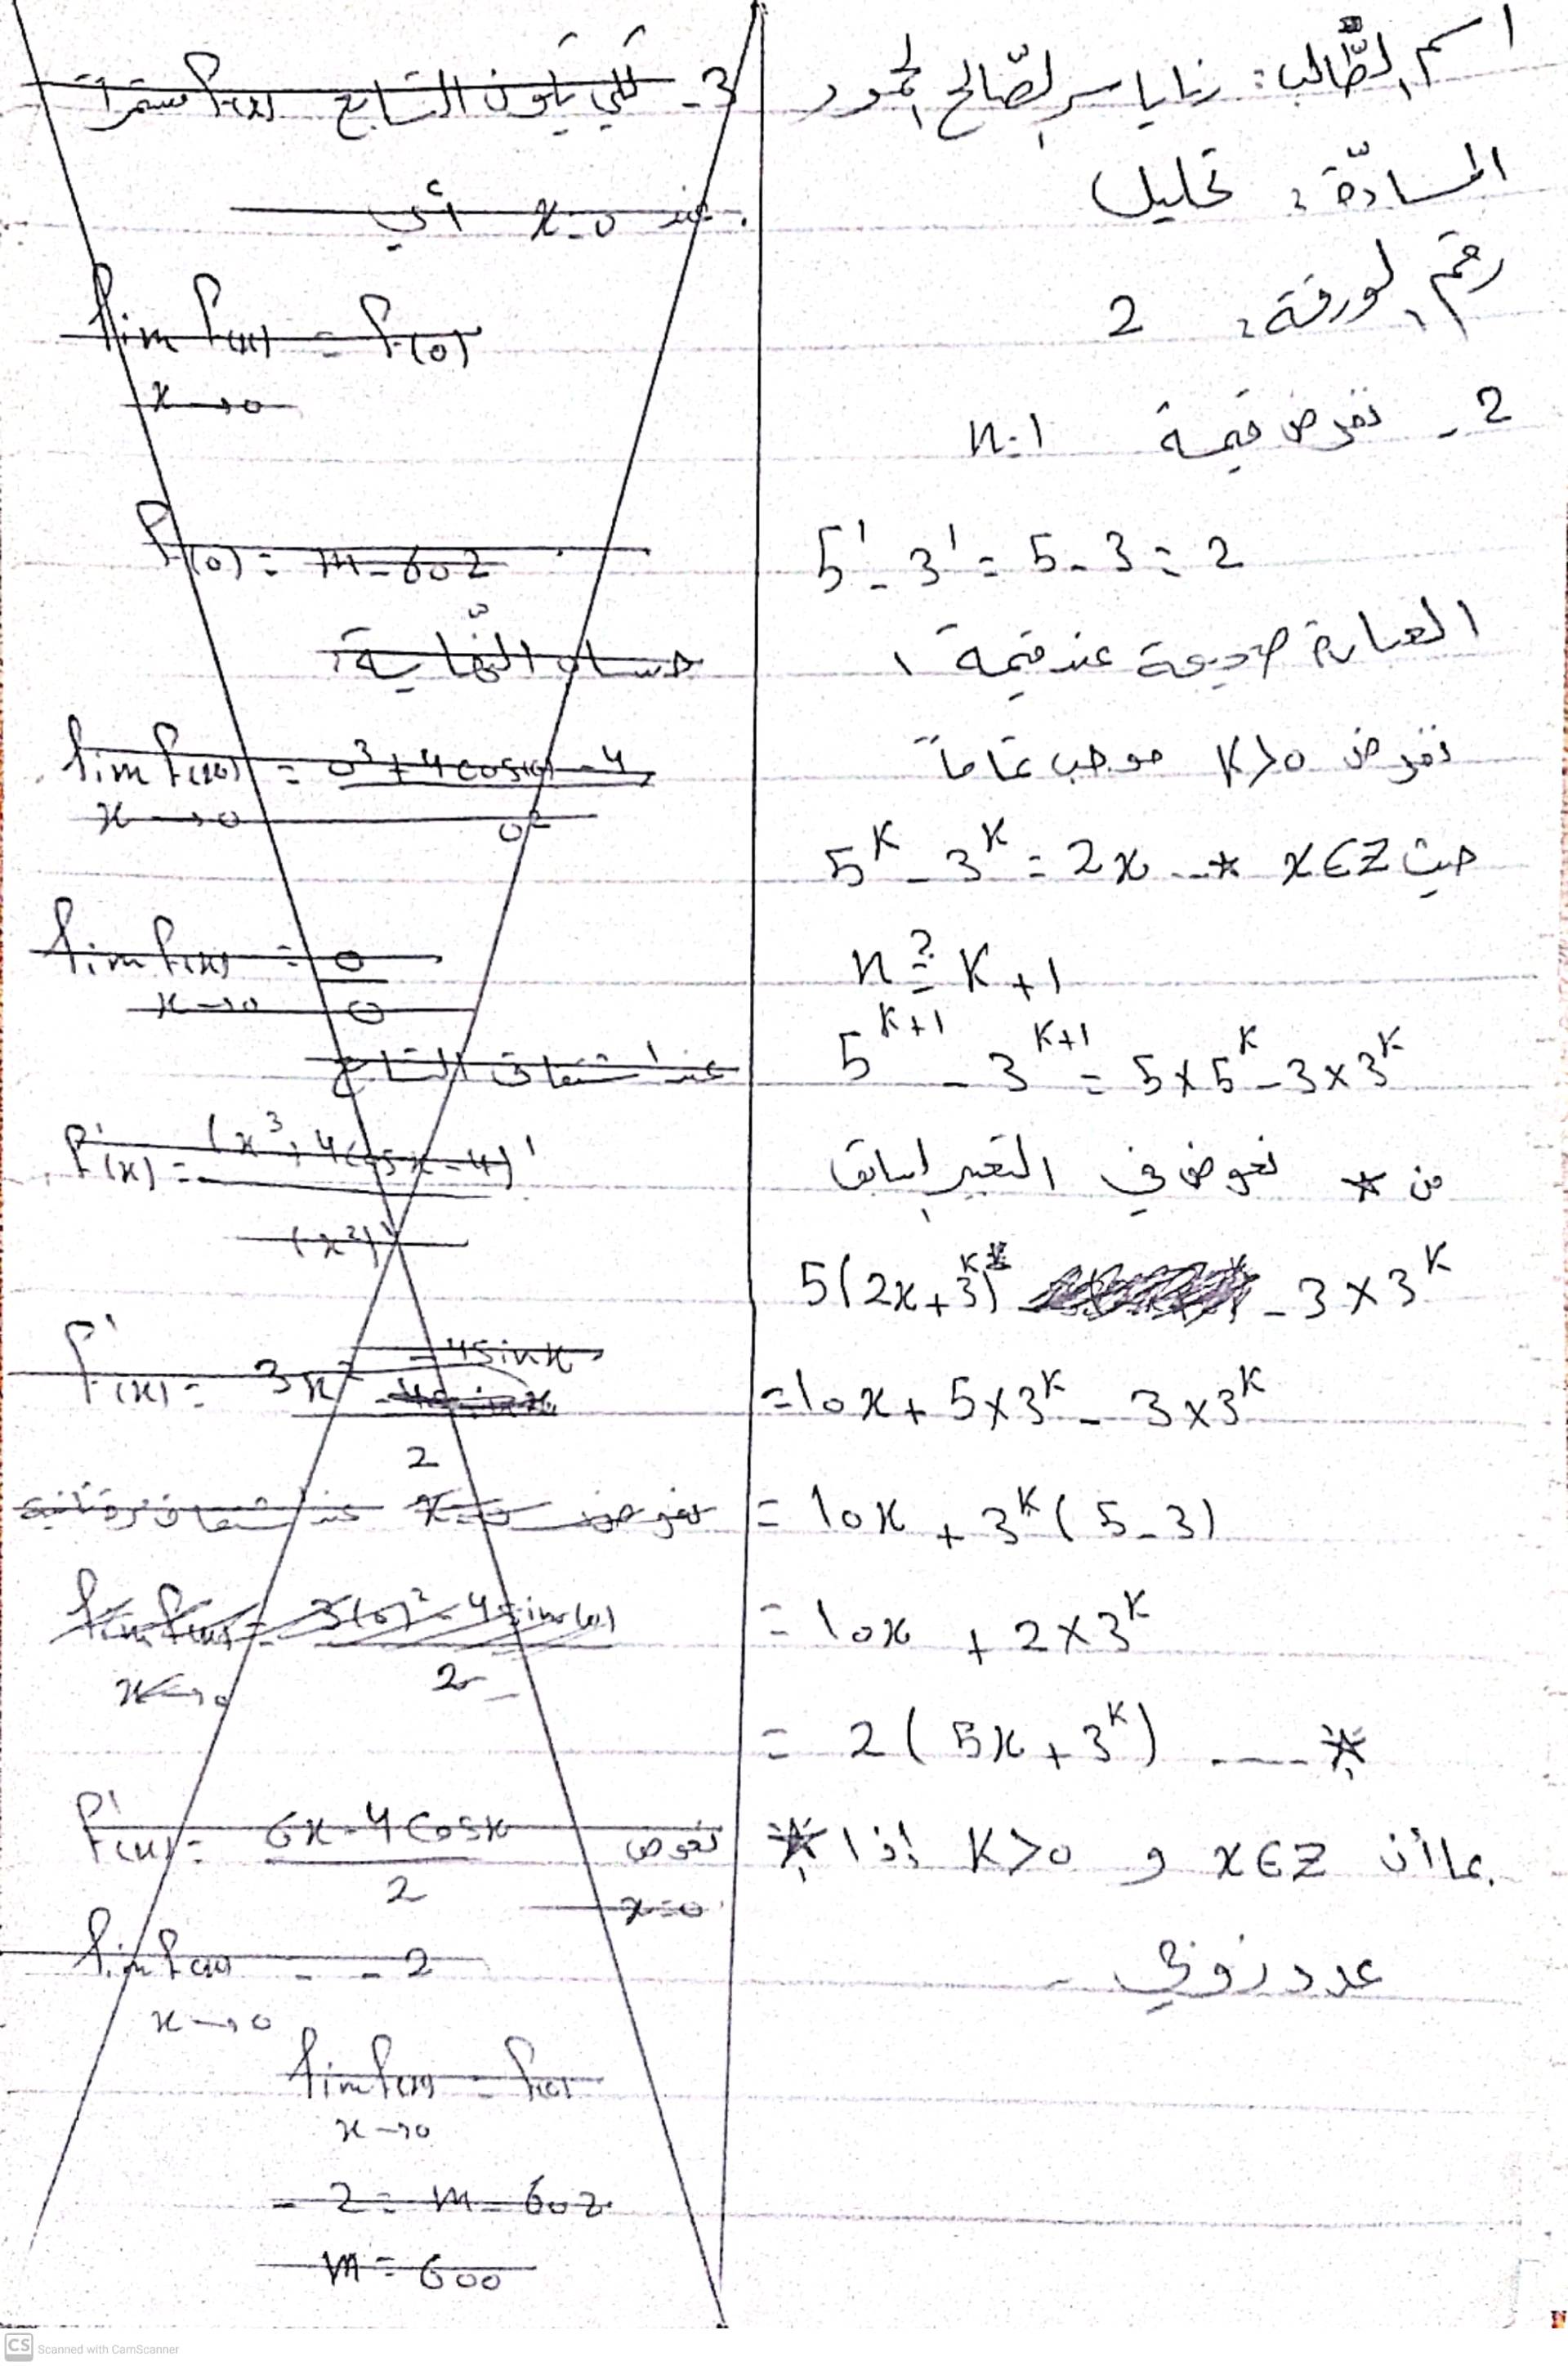 اسم الطّالب: زنا ياسر الصّالح الحمود
المادّة: تحليل
رقم الورقة: 2
2 - نفرض قيمة n=1
5¹ - 3¹ = 5 - 3 = 2
العبارة صحيحة عند قيمة 1
نفرض K>0 موجب تماماً
5^K - 3^K = 2x ..* x∈Z حيث
n ≟ K+1
5^{K+1} - 3^{K+1} = 5×5^K - 3×3^K
من * نعوض في التعبير السابق
5(2x+3^K) - 3×3^K
= 10x + 5×3^K - 3×3^K
= 10x + 3^K (5-3)
= 10x + 2×3^K
= 2(5x+3^K) ---- *
بما أن x∈Z و K>0 إذا *
عدد زوجي -
3 - لكي يكون التابع f(x) مستمراً
عند x=0 أي
lim f(x) = f(0)
x→0
f(0) = m-602
حساب النّهاية:
lim f(x) = 0³+4cos(0)-4
x→0 0²
lim f(x) = 0
x→0 0
عند اشتقاق التابع
f'(x) = (x³+4cosx-4)'
(x²)'
f'(x) = 3x² -4sinx
2
نعوض x=0
lim f(x) = 3(0)²-4sin(0)
x→0 2
f'(x) = 6x-4cosx نعوض
2 x=0
lim f(x) = -2
x→0
lim f(x) = f(0)
x→0
-2 = m-602
m = 600
CS Scanned with CamScanner